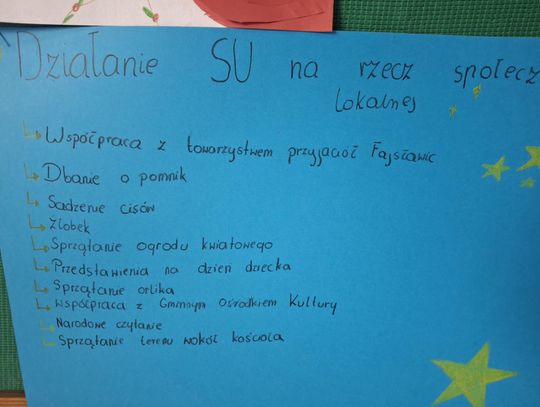 Działanie SU na rzecz społecz
lokalnej
Współpraca z towarzystwem przyjaciół Fajsławic
Dbanie o pomnik
Sadzenie cisów
Żłobek
Sprzątanie ogrodu kwiatowego
Przedstawienia na dzień dziecka
Sprzątanie orlika
Współpraca z Gminnym Ośrodkiem Kultury
Narodowe czytanie
Sprzątanie terenu wokół kościoła